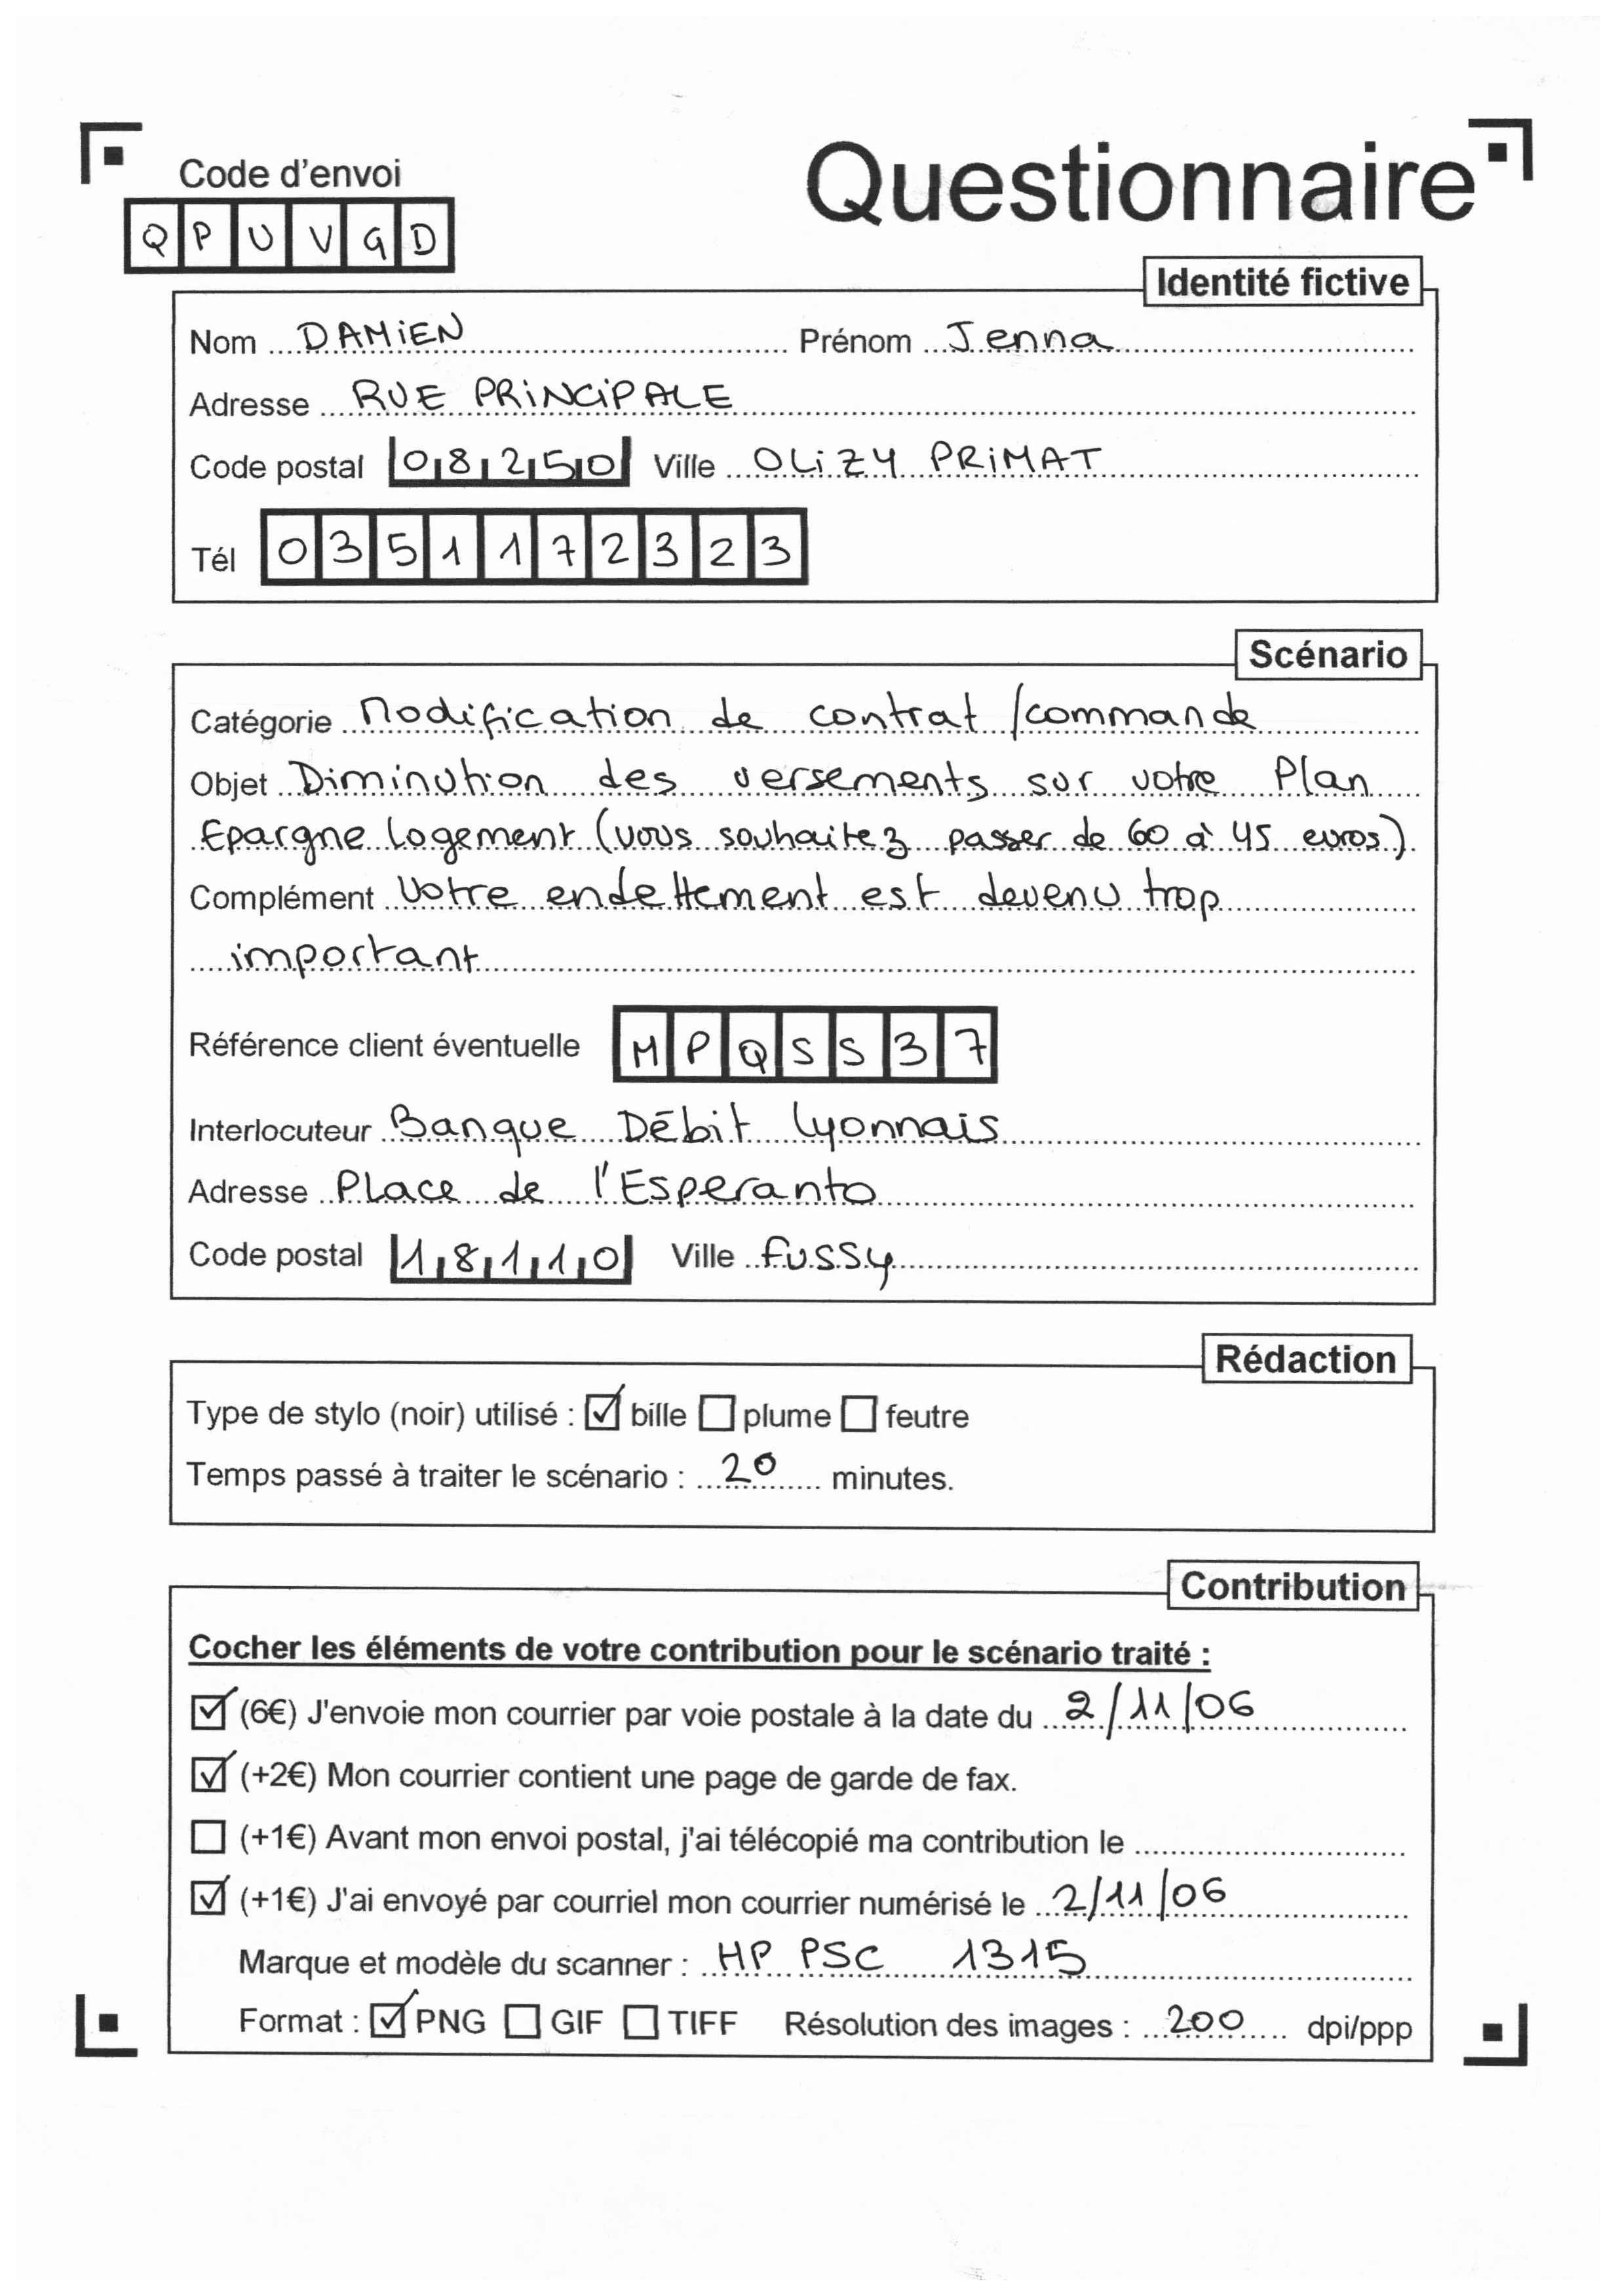 Code d'envoi
Questionnaire
Q P U V G D
Identité fictive
Nom DAMiEN Prénom Jenna
Adresse RUE PRiNCiPALE
Code postal 08250 Ville OLiZY PRiMAT
Tél 0351172323
Scénario
Catégorie Modification de contrat / commande
Objet Diminution des versements sur votre Plan
Epargne Logement (vous souhaitez passer de 60 à 45 euros)
Complément Votre endettement est devenu trop
important
Référence client éventuelle MPQSS37
Interlocuteur Banque Débit Lyonnais
Adresse Place de l'Esperanto
Code postal 18110 Ville fussy
Rédaction
Type de stylo (noir) utilisé : ☑ bille ☐ plume ☐ feutre
Temps passé à traiter le scénario : 20 minutes.
Contribution
Cocher les éléments de votre contribution pour le scénario traité :
☑ (6€) J'envoie mon courrier par voie postale à la date du 2/11/06
☑ (+2€) Mon courrier contient une page de garde de fax.
☐ (+1€) Avant mon envoi postal, j'ai télécopié ma contribution le
☑ (+1€) J'ai envoyé par courriel mon courrier numérisé le 2/11/06
Marque et modèle du scanner : HP PSC 1315
Format : ☑ PNG ☐ GIF ☐ TIFF Résolution des images : 200 dpi/ppp